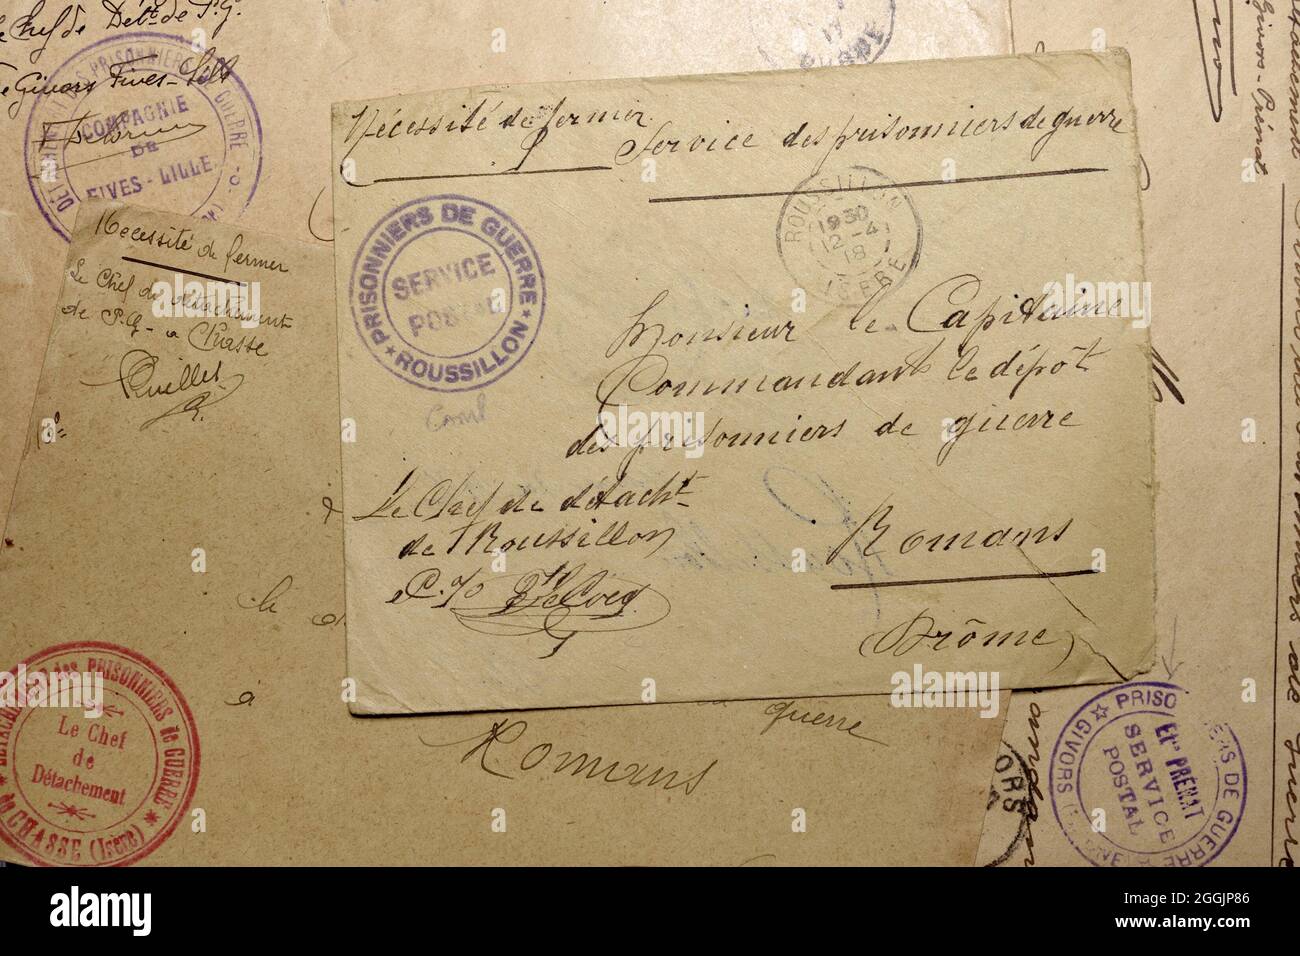 Le Chef de Dét. de P.G.
de Givors Fives-Lille
DÉTACHEMENT DES PRISONNIERS DE GUERRE
COMPAGNIE
DE
FIVES-LILLE
Nécessité de fermer
Le Chef de détachement
de P.G. à Chasse
DÉTACHEMENT des PRISONNIERS de GUERRE
de CHASSE (Isère)
Le Chef
de
Détachement
Nécessité de fermer
Service des prisonniers de guerre
PRISONNIERS DE GUERRE
SERVICE
POSTAL
ROUSSILLON
ROUSSILLON
1930
12-4
18
ISERE
Monsieur le Capitaine
Commandant le dépôt
des prisonniers de guerre
Romans
Drôme
Le Chef de détacht
de Roussillon
guerre
Romans
Givors-Prénat
PRISONNIERS DE GUERRE
Ets PRÉNAT
SERVICE
POSTAL
GIVORS
ORS
alamy
Image ID: 2GGJP86
www.alamy.com